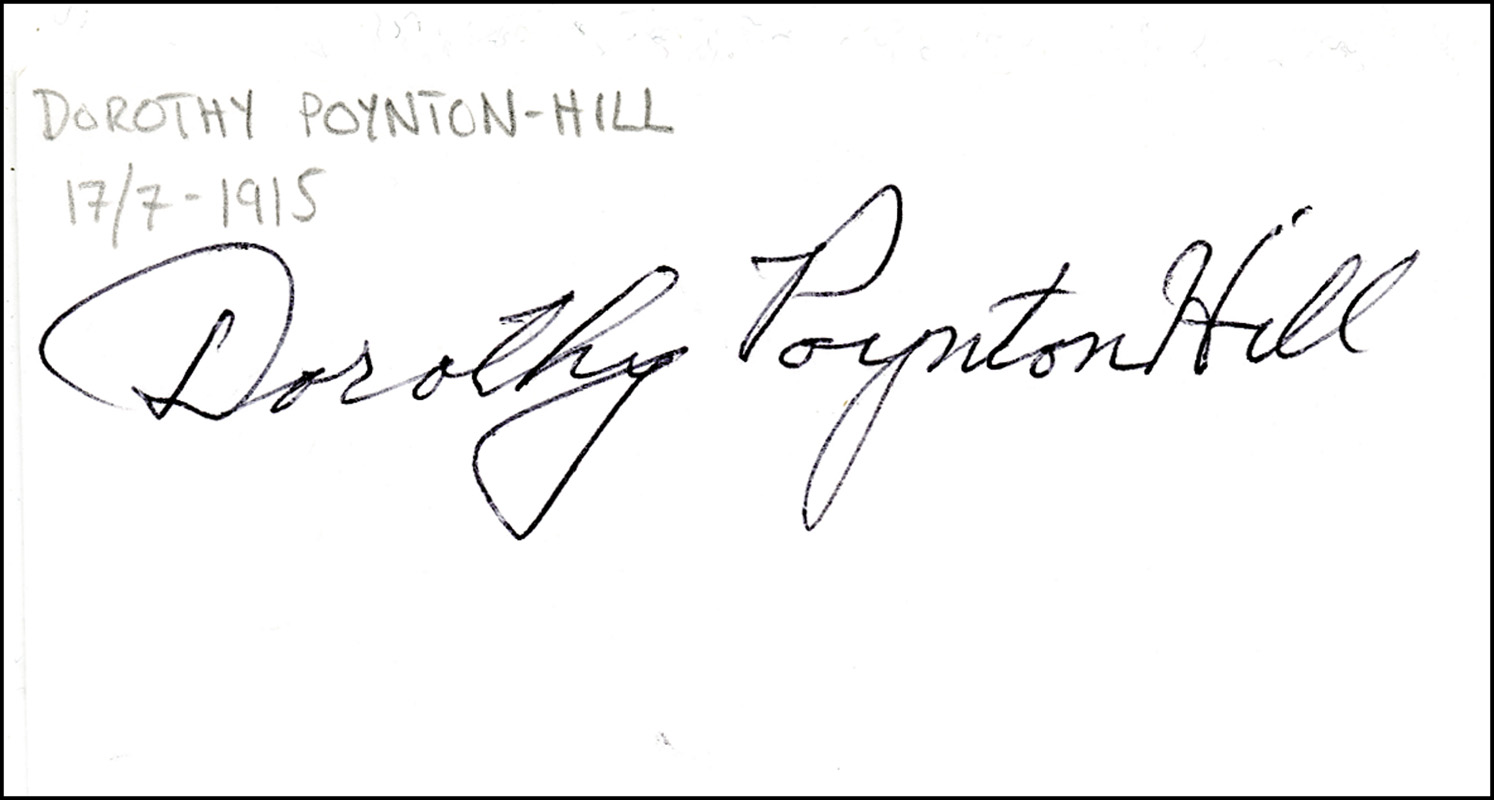 DOROTHY POYNTON-HILL
17/7-1915
Dorothy Poynton Hill